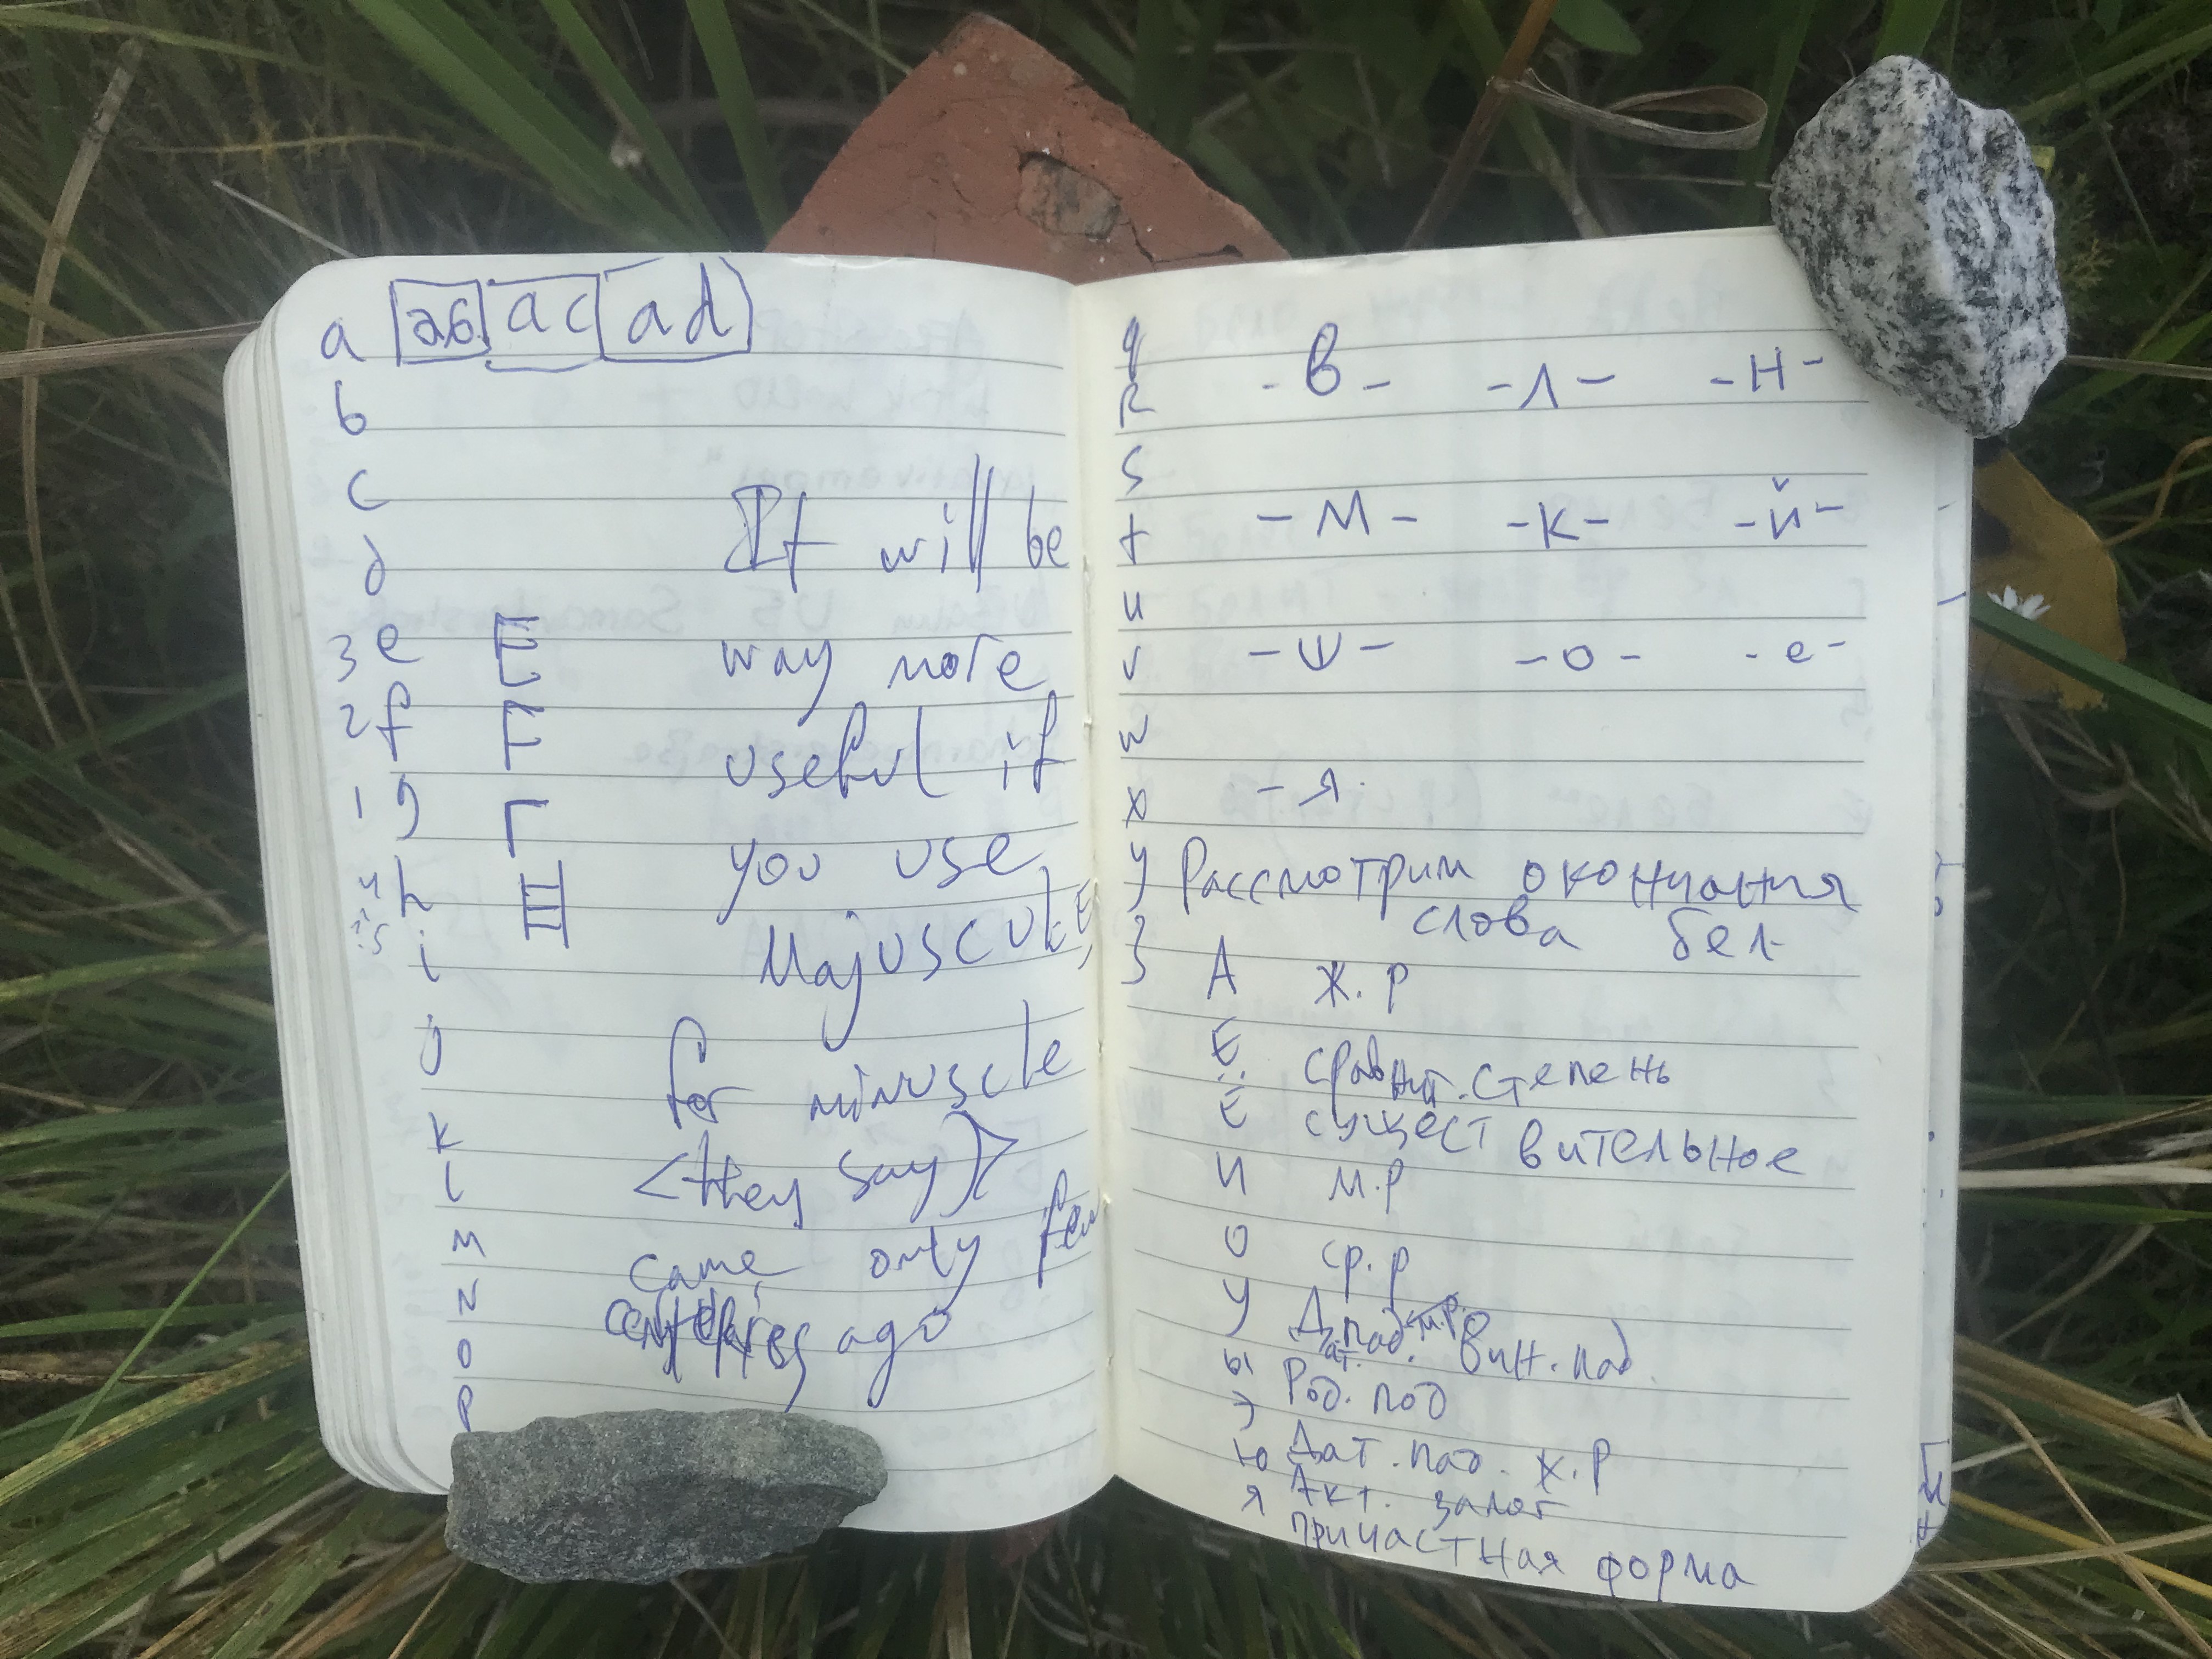 a ab ac ad
b
c
d
3 e E
2 f F
1 g Г
4 h
i
j
k
l
M
N
O
P
It will be
way more
useful if
you use
MajusculE,
for minuscle
<(they say)>
came only few
ago
q
R
s
t
u
v
w
x
y
z
- в - - л - - н -
- м - - к - - й -
- ш - - о - - е -
- я -
Рассмотрим окончания
слова бел-
А ж.р
Е сравнит. степень
Ё существительное
И м.р
О ср.р
У Дат. пад. Вин. пад
ы Род. пад
э
ю Дат. пад. ж.р
я Акт. залог
причастная форма